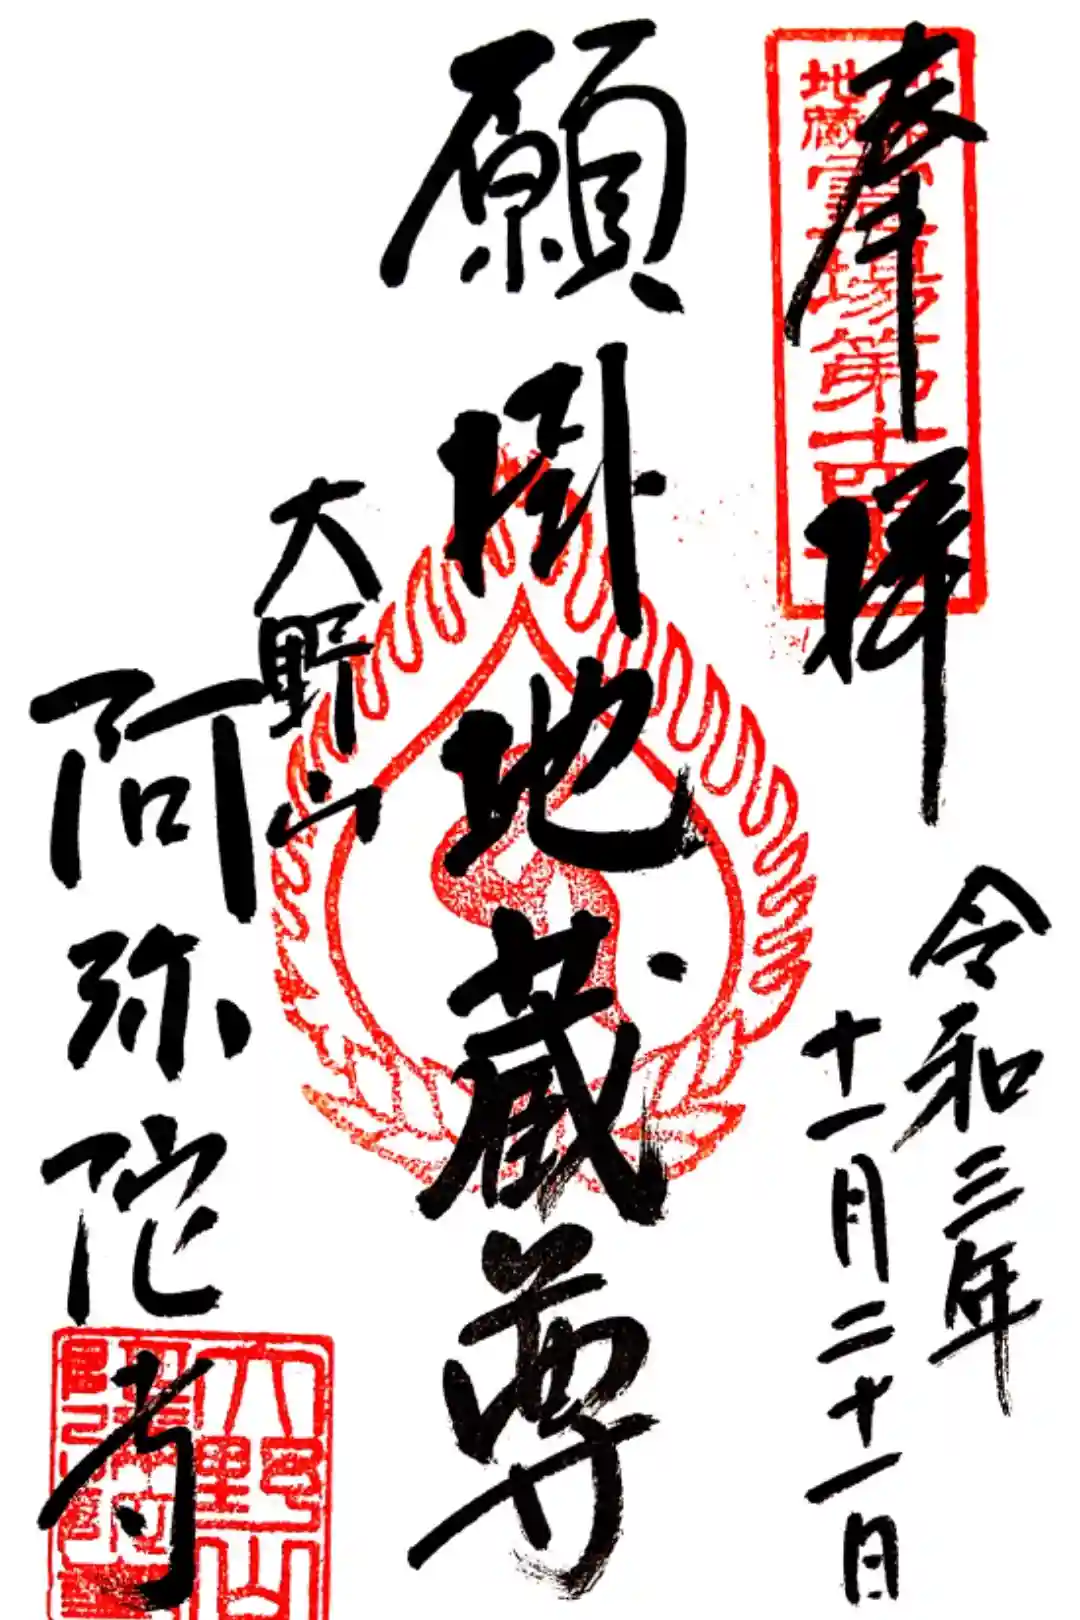 奉拝
地蔵霊場第十四番
令和三年
十一月二十一日
願掛地蔵尊
大野山
阿弥陀寺
大野山